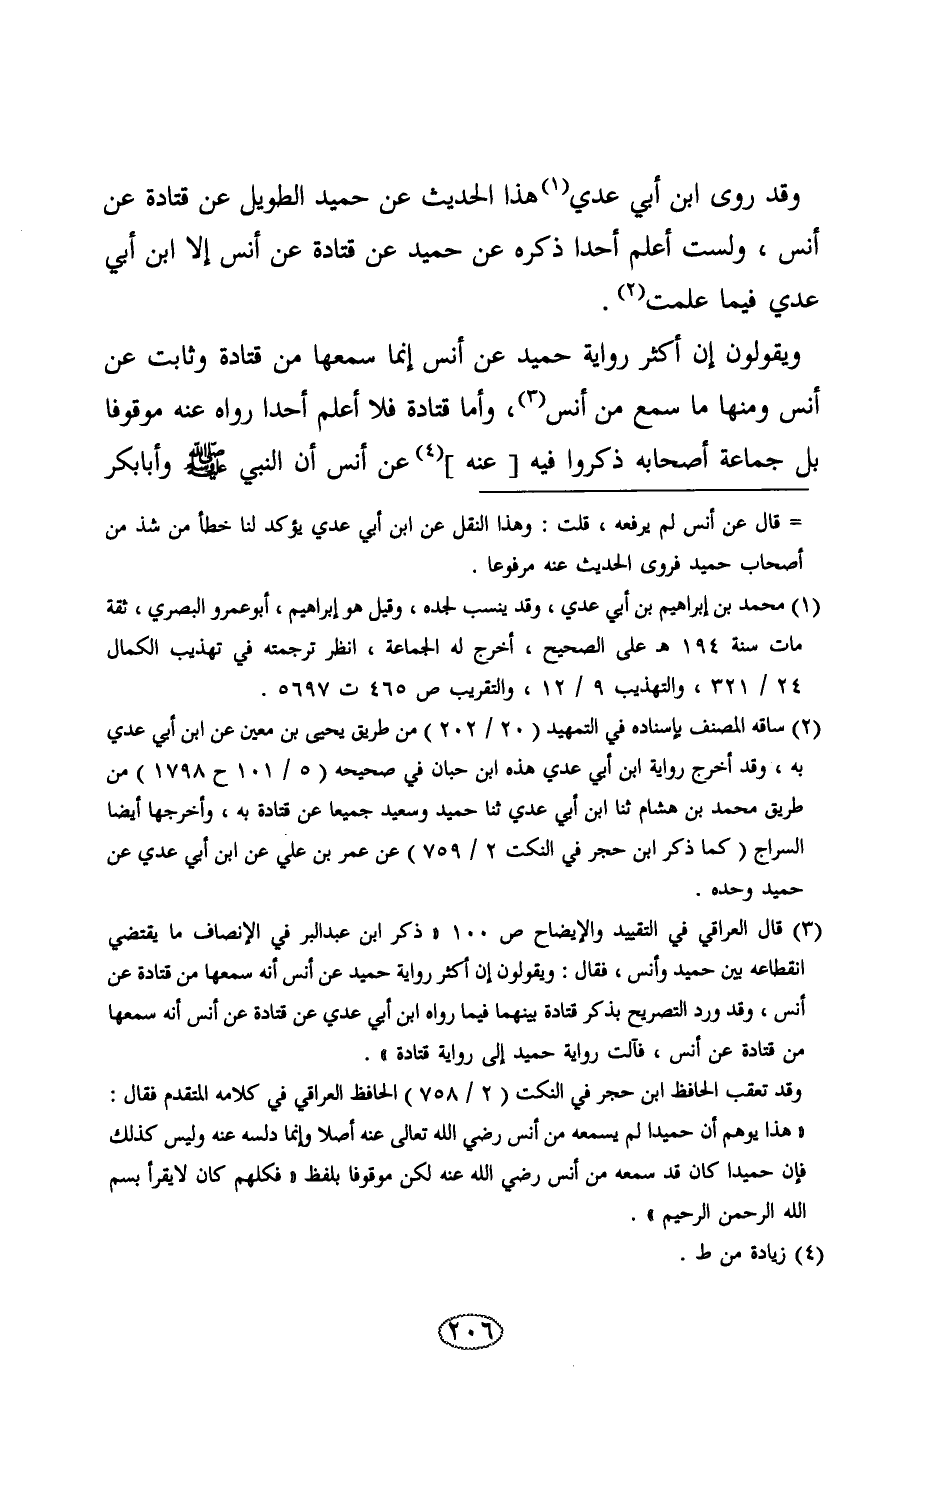 وقد روى ابن أبي عدي(١) هذا الحديث عن حميد الطويل عن قتادة عن
أنس ، ولست أعلم أحدا ذكره عن حميد عن قتادة عن أنس إلا ابن أبي
عدي فيما علمت(٢) .
ويقولون إن أكثر رواية حميد عن أنس إنما سمعها من قتادة وثابت عن
أنس ومنها ما سمع من أنس(٣) ، وأما قتادة فلا أعلم أحدا رواه عنه موقوفا
بل جماعة أصحابه ذكروا فيه [ عنه ](٤) عن أنس أن النبي ﷺ وأبابكر
= قال عن أنس لم يرفعه ، قلت : وهذا النقل عن ابن أبي عدي يؤكد لنا خطأ من شذ من
أصحاب حميد فروى الحديث عنه مرفوعا .
(١) محمد بن إبراهيم بن أبي عدي ، وقد ينسب لجده ، وقيل هو إبراهيم ، أبوعمرو البصري ، ثقة
مات سنة ١٩٤ هـ على الصحيح ، أخرج له الجماعة ، انظر ترجمته في تهذيب الكمال
٢٤ / ٣٢١ ، والتهذيب ٩ / ١٢ ، والتقريب ص ٤٦٥ ت ٥٦٩٧ .
(٢) ساقه المصنف بإسناده في التمهيد ( ٢٠ / ٢٠٢ ) من طريق يحيى بن معين عن ابن أبي عدي
به ، وقد أخرج رواية ابن أبي عدي هذه ابن حبان في صحيحه ( ٥ / ١٠١ ح ١٧٩٨ ) من
طريق محمد بن هشام ثنا ابن أبي عدي ثنا حميد وسعيد جميعا عن قتادة به ، وأخرجها أيضا
السراج ( كما ذكر ابن حجر في النكت ٢ / ٧٥٩ ) عن عمر بن علي عن ابن أبي عدي عن
حميد وحده .
(٣) قال العراقي في التقييد والإيضاح ص ١٠٠ « ذكر ابن عبدالبر في الإنصاف ما يقتضي
انقطاعه بين حميد وأنس ، فقال : ويقولون إن أكثر رواية حميد عن أنس أنه سمعها من قتادة عن
أنس ، وقد ورد التصريح بذكر قتادة بينهما فيما رواه ابن أبي عدي عن قتادة عن أنس أنه سمعها
من قتادة عن أنس ، فآلت رواية حميد إلى رواية قتادة » .
وقد تعقب الحافظ ابن حجر في النكت ( ٢ / ٧٥٨ ) الحافظ العراقي في كلامه المتقدم فقال :
« هذا يوهم أن حميدا لم يسمعه من أنس رضي الله تعالى عنه أصلا وإنما دلسه عنه وليس كذلك
فإن حميدا كان قد سمعه من أنس رضي الله عنه لكن موقوفا بلفظ « فكلهم كان لايقرأ بسم
الله الرحمن الرحيم » .
(٤) زيادة من ط .
٢٠٦